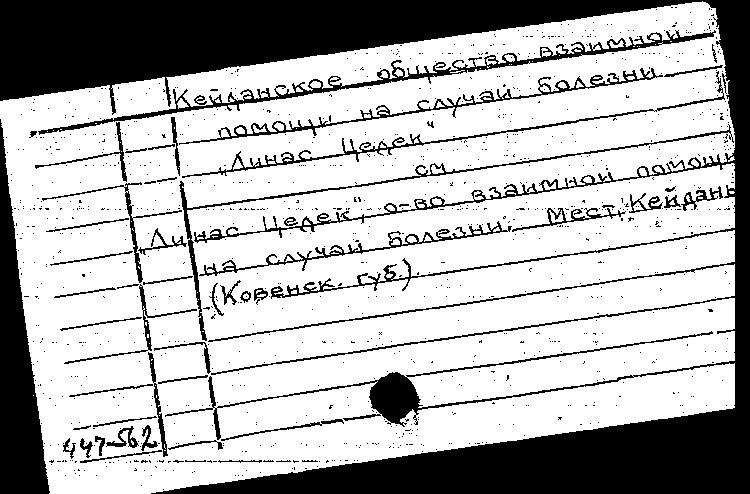 Кейданское общество взаимной
помощи на случай болезни
„Линас Цедек"
см.
„Линас Цедек", о-во взаимной помощи
на случай болезни. Мест. Кейданы
(Ковенск. губ.).
447-562